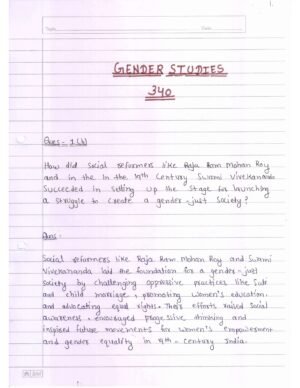 1.
Topic
Date
GENDER STUDIES
340
Ques - 1 (b)
How did Social reformers like Raja Ram Mohan Roy
and in the In the 19th Century Swami Vivekananda
Succeeded in Setting up the Stage for launching
a struggle to create a gender-just Society?
Ans -
Social reformers like Raja Ram Mohan Roy and Swami
Vivekananda laid the foundation for a gender-just
society by challenging oppressive practices like Sati
and child marriage, promoting women's education,
and advocating equal rights. Their efforts raised Social
awareness, encouraged progressive thinking and
inspired future movements for women's empowerment
and gender equality in 19th-Century India.